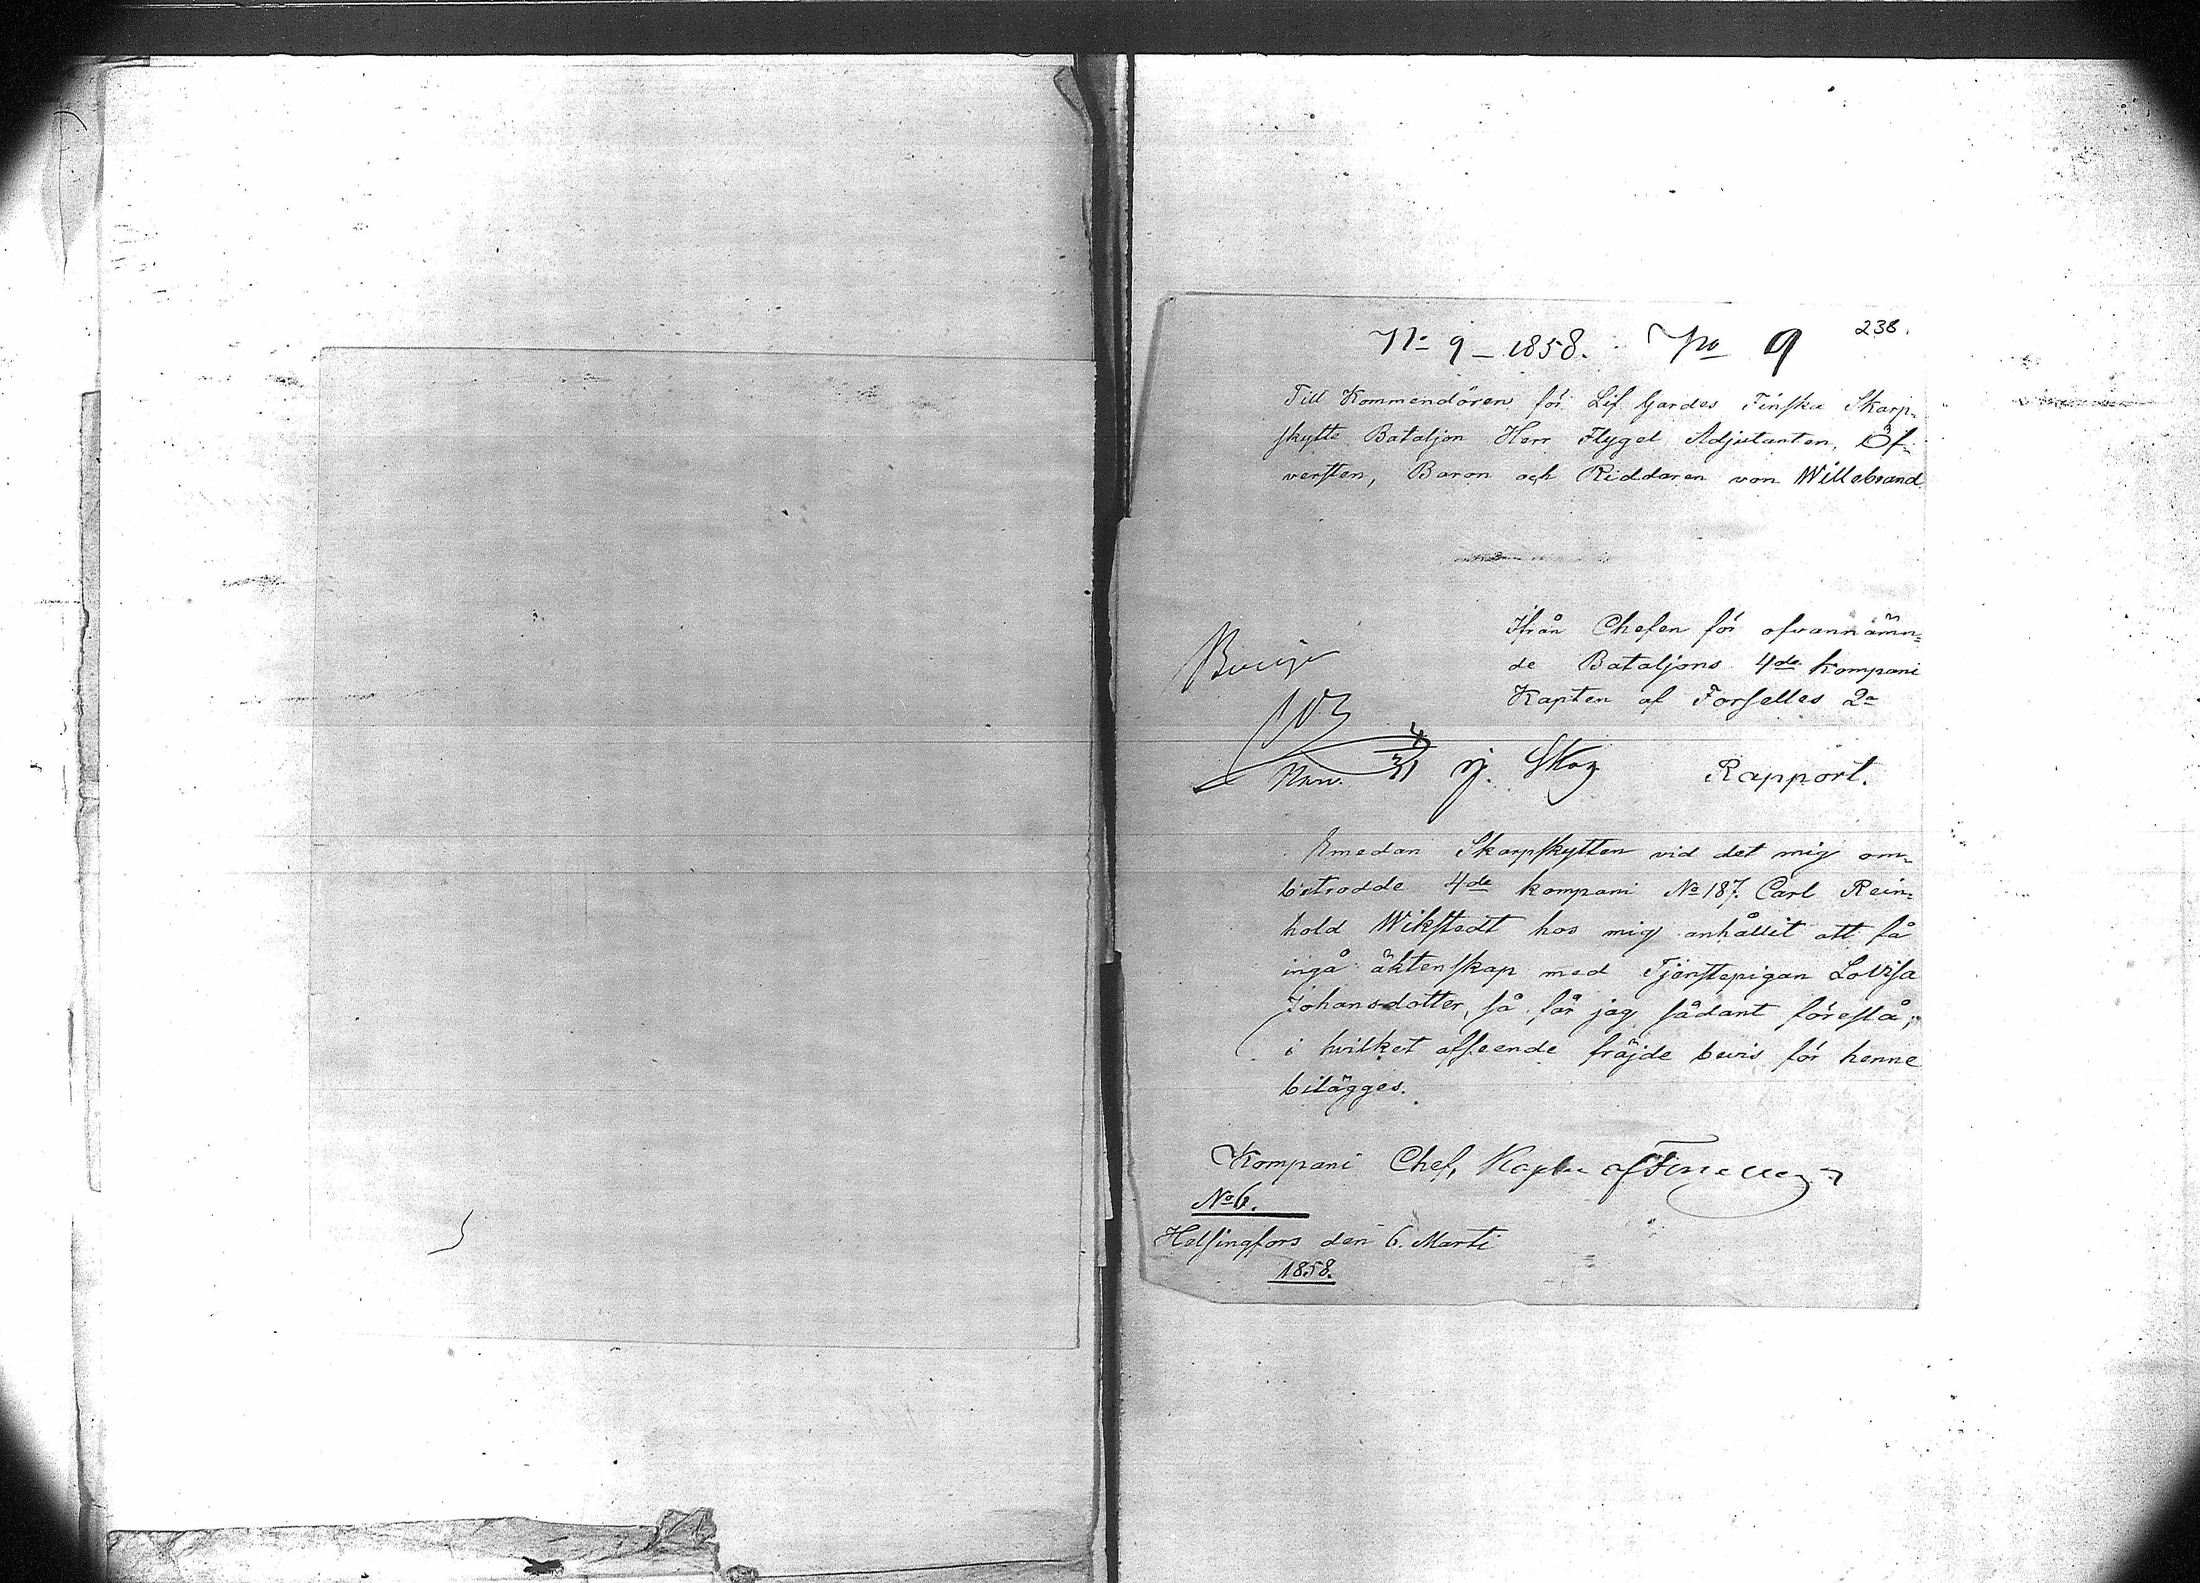 238.
No 9 – 1858. No 9
Till Kommendören för Lif Gardes Finska Skarp-
skytte Bataljon Herr Flygel Adjutanten, Öf-
versten, Baron och Riddaren von Willebrand
Ifrån Chefen för ofvannämn-
de Bataljons 4de Kompani
Kapten af Forselles 2a
Rapport.
Emedan Skarpskytten vid det mig om-
betrodde 4de kompani No 187. Carl Rein-
hold Wikstedt hos mig anhållit att få
ingå äktenskap med Tjenstepigan Lovisa
Johansdotter, så får jag sådant föreslå;
i hvilket afseende fräjde bevis för henne
bilägges.
Kompani Chef, Kapten af Forselles
No 6.
Helsingfors den 6. Marti
1858.